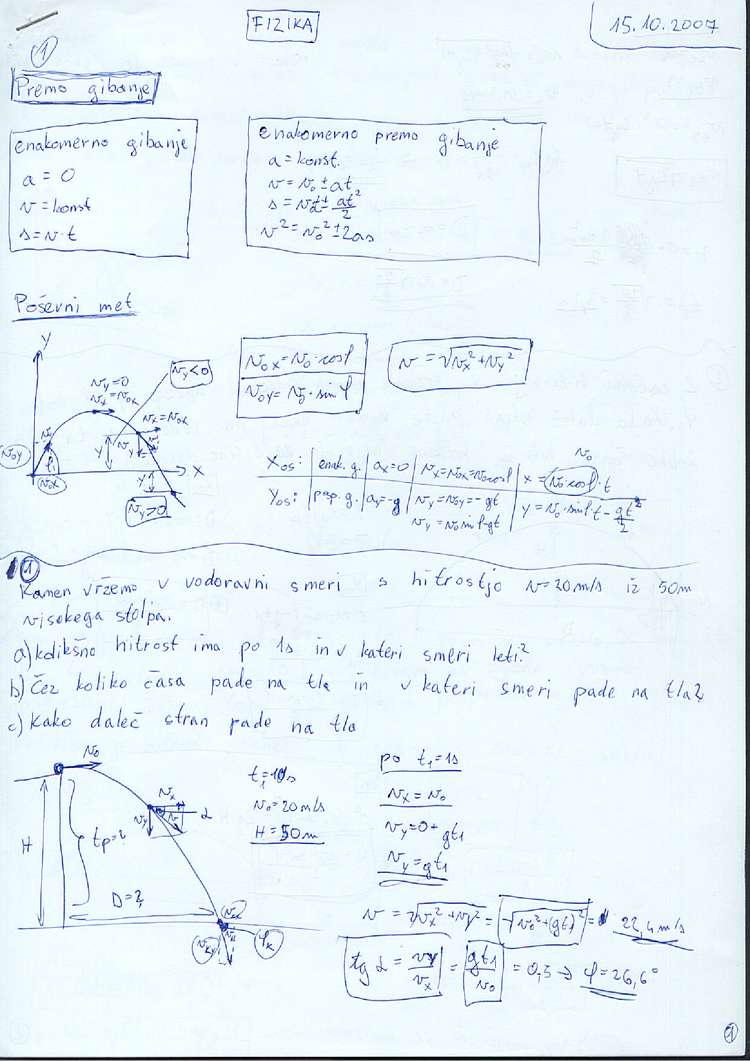 FIZIKA
15.10.2007
1
Premo gibanje
enakomerno gibanje
a = 0
v = konst
s = v·t
enakomerno premo gibanje
a = konst.
v = v₀ ± at
s = vt ± at²/2
v² = v₀² ± 2as
Poševni met
y
vy=0
vx=v₀x
vy<0
vx=v₀x
v₀
vy
v₀y
φ
v₀x
y
x
y
vy>0
v₀x = v₀·cosφ
v₀y = v₀·sinφ
v = √vx²+vy²
v₀
Xos: | enak. g. | ax=0 | vx=v₀x=v₀cosφ | x = v₀·cosφ·t
Yos: | posp. g. | ay=-g | vy=v₀y=-gt | y = v₀·sinφ·t - gt²/2
vy=v₀sinφ-gt
1
Kamen vržemo v vodoravni smeri s hitrostjo v=20m/s iz 50m
visokega stolpa.
a) kolikšno hitrost ima po 1s in v kateri smeri leti?
b) Čez koliko časa pade na tla in v kateri smeri pade na tla?
c) Kako daleč stran pade na tla
v₀
H
tp=?
vx
vy
v
α
D=?
vkx
vky
vk
φk
t₁=1s
v₀=20m/s
H=50m
po t₁=1s
vx = v₀
vy=0+gt₁
vy=gt₁
v = √vx²+vy² = √v₀²+(gt)² = 22,4 m/s
tg α = vy/vx = gt₁/v₀ = 0,5 → φ=26,6°
1